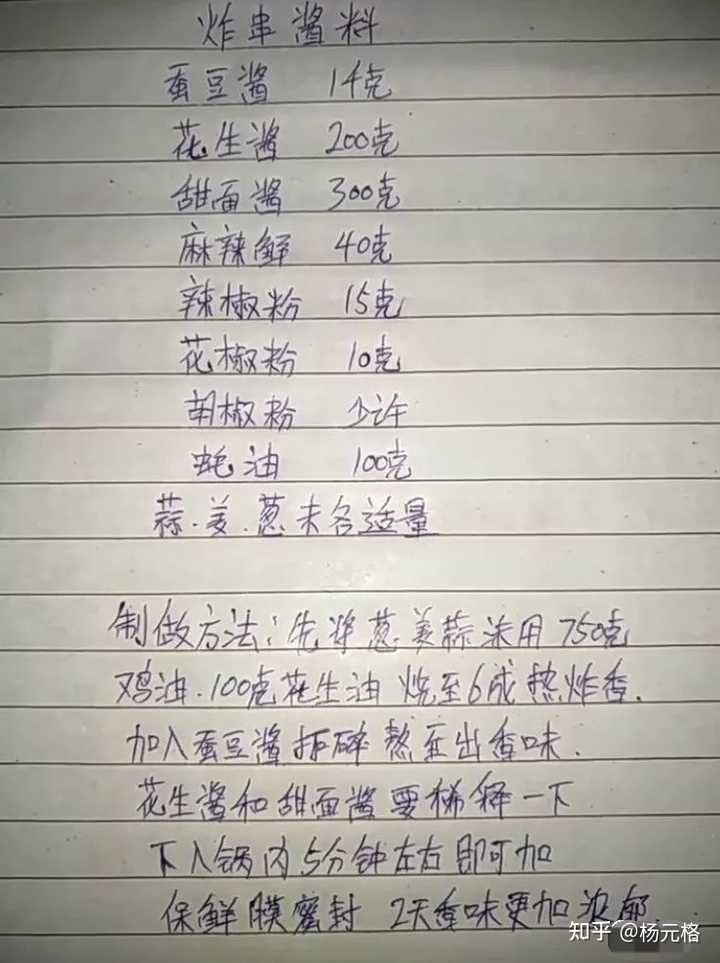 炸串酱料
蚕豆酱 1千克
花生酱 200克
甜面酱 300克
麻辣鲜 40克
辣椒粉 15克
花椒粉 10克
胡椒粉 少许
蚝油 100克
蒜.姜.葱末各适量
制做方法:先将葱姜蒜沫用750克
鸡油.100克花生油 烧至6成热炸香.
加入蚕豆酱 碎 熬至出香味.
花生酱和甜面酱要稀释一下
下入锅内5分钟左右即可加
保鲜膜密封 2天香味更加浓郁.
知乎 @杨元格